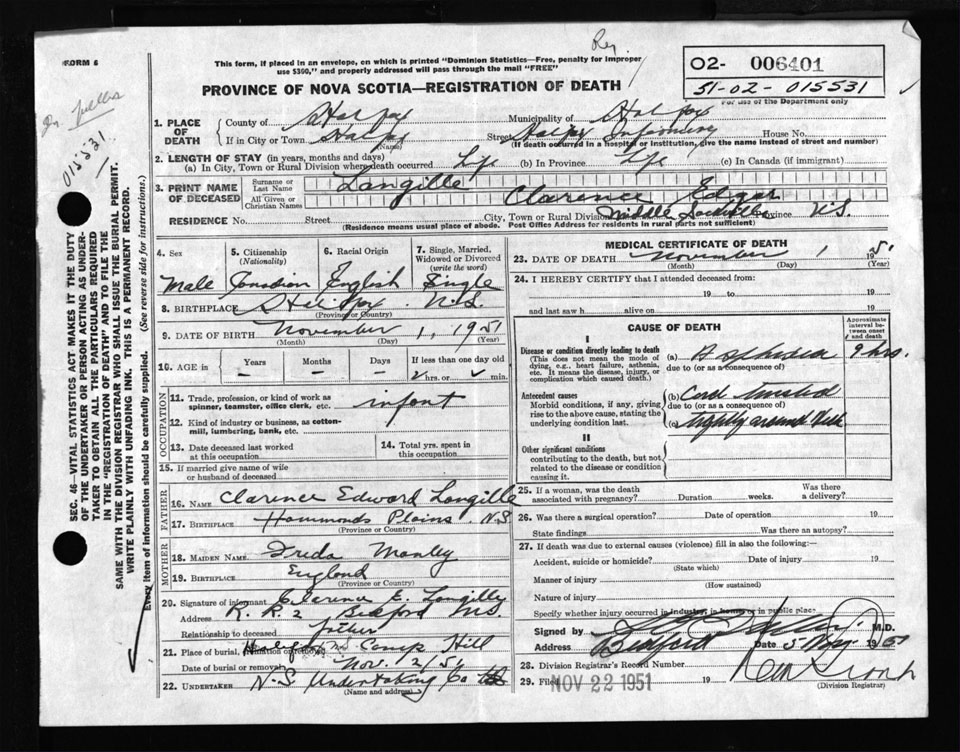 FORM 6
This form, if placed in an envelope, on which is printed "Dominion Statistics—Free, penalty for improper
use $300," and properly addressed will pass through the mail "FREE"
Reg.
02- 006401
51-02-015531
For use of the Department only
PROVINCE OF NOVA SCOTIA—REGISTRATION OF DEATH
015531
SEC. 46—VITAL STATISTICS ACT MAKES IT THE DUTY
OF THE UNDERTAKER OR PERSON ACTING AS UNDER-
TAKER TO OBTAIN ALL THE PARTICULARS REQUIRED
IN THE "REGISTRATION OF DEATH" AND TO FILE THE
SAME WITH THE DIVISION REGISTRAR WHO SHALL ISSUE THE BURIAL PERMIT.
WRITE PLAINLY WITH UNFADING INK. THIS IS A PERMANENT RECORD.
Every item of information should be carefully supplied. (See reverse side for instructions.)
1. PLACE OF DEATH
County of Halifax Municipality of Halifax
If in City or Town Halifax (Name) Street Halifax Infirmary House No.
(If death occurred in a hospital or institution, give the name instead of street and number)
2. LENGTH OF STAY (in years, months and days)
(a) In City, Town or Rural Division where death occurred Life (b) In Province Life (c) In Canada (if immigrant)
3. PRINT NAME OF DECEASED
Surname or Last Name Langille
All Given or Christian Names Clarence Edgar
RESIDENCE No. Street City, Town or Rural Division Middle Sackville Province N.S.
(Residence means usual place of abode. Post Office Address for residents in rural parts not sufficient)
4. Sex Male
5. Citizenship (Nationality) Canadian
6. Racial Origin English
7. Single, Married, Widowed or Divorced (write the word) Single
8. BIRTHPLACE Halifax N.S.
(Province or Country)
9. DATE OF BIRTH November 1, 1951
(Month) (Day) (Year)
10. AGE in Years – Months – Days – If less than one day old hrs. or min.
OCCUPATION
11. Trade, profession, or kind of work as
spinner, teamster, office clerk, etc. infant
12. Kind of industry or business, as cotton-
mill, lumbering, bank, etc.
13. Date deceased last worked
at this occupation
14. Total yrs. spent in
this occupation
15. If married give name of wife
or husband of deceased
FATHER
16. NAME Clarence Edward Langille
17. BIRTHPLACE Hammonds Plains N.S.
(Province or Country)
MOTHER
18. MAIDEN NAME Freda Manley
19. BIRTHPLACE England
(Province or Country)
20. Signature of informant Clarence E. Langille
Address R.R. 2 Bedford N.S.
Relationship to deceased father
21. Place of burial, Halifax Camp Hill
Date of burial or removal Nov. 2/51
22. UNDERTAKER N.S. Undertaking Co
(Name and address)
MEDICAL CERTIFICATE OF DEATH
23. DATE OF DEATH November 1 1951
(Month) (Day) (Year)
24. I HEREBY CERTIFY that I attended deceased from:
19 to 19
and last saw h alive on 19
CAUSE OF DEATH
Approximate interval between onset and death
I
Disease or condition directly leading to death
(This does not mean the mode of
dying, e.g., heart failure, asthenia,
etc. It means the disease, injury, or
complication which caused death.)
(a) Asphyxia 9 hrs.
due to (or as a consequence of)
Antecedent causes
Morbid conditions, if any, giving
rise to the above cause, stating the
underlying condition last.
(b) Cord twisted
due to (or as a consequence of)
(c) tightly around neck
II
Other significant conditions
contributing to the death, but not
related to the disease or condition
causing it.
25. If a woman, was the death
associated with pregnancy? Duration weeks. Was there
a delivery?
26. Was there a surgical operation? Date of operation 19
State findings Was there an autopsy?
27. If death was due to external causes (violence) fill in also the following:—
Accident, suicide or homicide? Date of injury 19
(State which)
Manner of injury
(How sustained)
Nature of injury
Specify whether injury occurred in industry, in home or in public place
Signed by M.D.
Address Bedford Date 5 Nov 1951
28. Division Registrar's Record Number
29. Filed NOV 22 1951 19
(Division Registrar)